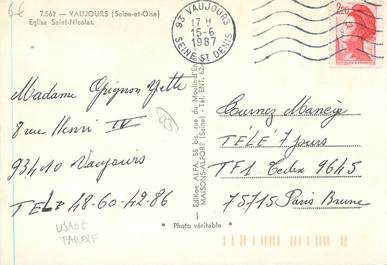 6€
7.562 — VAUJOURS (Seine-et-Oise)
Eglise Saint-Nicolas.
93 VAUJOURS
17 H
15-6
1987
SEINE ST DENIS
2,20
Madame Grignon Yette
8 rue Henri IV
93410 Vaujours
TELE 48-60-42-86
93
USAGÉ
TARDIF
Edition ALFA, 55 bis, rue du Moulin-d'En
MAISONS-ALFORT (Seine) - Tél. ENT. 62
* Photo véritable *
Tournez Manège
TÉLÉ 7 Jours
TF1 Cedex 9645
75715 Paris Brune